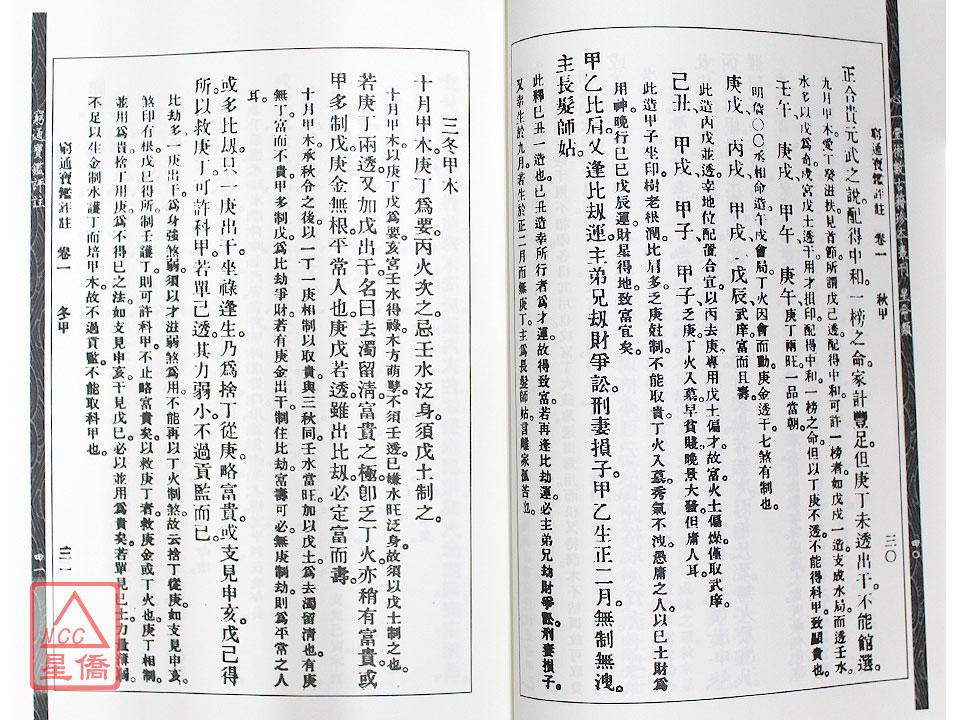 窮通寶鑑評註 卷一 秋甲 三〇
正合貴元武之說配得中和一榜之命家計豐足但庚丁未透出干不能館選
九月甲木愛丁癸滋扶見首節所謂戊己透配得中和可許一榜者如戊戌一造支成水局而透壬水
水多以戊爲奇戌宮戊土透干用才損印配得中和一榜之命但以丁庚不透不能得科甲致顯貴也
壬午、庚戌、甲午、庚午庚丁兩旺一品當朝
明僖〇〇丞相命造午戌會局丁火因會而動庚金透干七煞有制也
庚戌、丙戌、甲戌、戊辰武庠富而且壽
此造丙戊並透幸地位配置合宜以丙去庚專用戊土偏才故富火土偏燥僅取武庠
己丑、甲戌、甲子、甲子乏庚丁火入墓早貧賤晚景大發但庸人耳
此造甲子坐印樹老根潤比肩多乏庚尅制不能取貴丁火入墓秀氣不洩愚庸之人以巳土財爲
用神晚行巳巳戊辰運財星得地致富宜矣
甲乙比肩又逢比刼運主弟兄刼財爭訟刑妻損子甲乙生正二月無制無洩
主長髮師姑
此釋己丑一造也己丑造幸所行者爲才運故得致富若再逢比劫運必主弟兄劫財爭訟刑妻損子
又幸生於九月若生於正二月而無庚丁主爲長髮師姑言雖家孤苦也
四〇
三冬甲木
十月甲木庚丁爲要丙火次之忌壬水泛身須戊土制之
十月甲木以庚丁戊爲要亥宮壬水得祿木方萌孽不須壬透已嫌水旺泛身故須以戊土制之也
若庚丁兩透又加戊出干名曰去濁留清富貴之極卽乏丁火亦稍有富貴或
甲多制戊庚金無根平常人也庚戊若透雖出比刼必定富而壽
十月甲木承秋令之後以一丁一庚相制以取貴與三秋同壬水當旺加以戊土爲去濁留清也有庚
無丁富而不貴甲多制戊爲比劫爭財若有庚金出干制住比劫富壽可必無庚制劫則爲平常之人
耳
或多比刼只一庚出干坐祿逢生乃爲捨丁從庚略富貴或支見申亥戊己得
所以救庚丁可許科甲若單己透其力弱小不過貢監而已
比劫多一庚出干爲身強煞弱須以才滋弱煞爲用不能再以丁火制煞故云捨丁從庚如支見申亥
煞印有根戊已得所制壬護丁則可許科甲不止略富貴矣以救庚丁者救庚金或丁火也庚丁相制
並用爲貴捨丁用庚爲不得已之法如支見申亥干見戊已必以並用爲貴矣若單見巳土力量薄弱
不足以生金制水護丁而培甲木故不過貢監不能取科甲也
窮通寶鑑評註 卷一 冬甲 三一
窮通寶鑑評註
四一
NCC
星僑